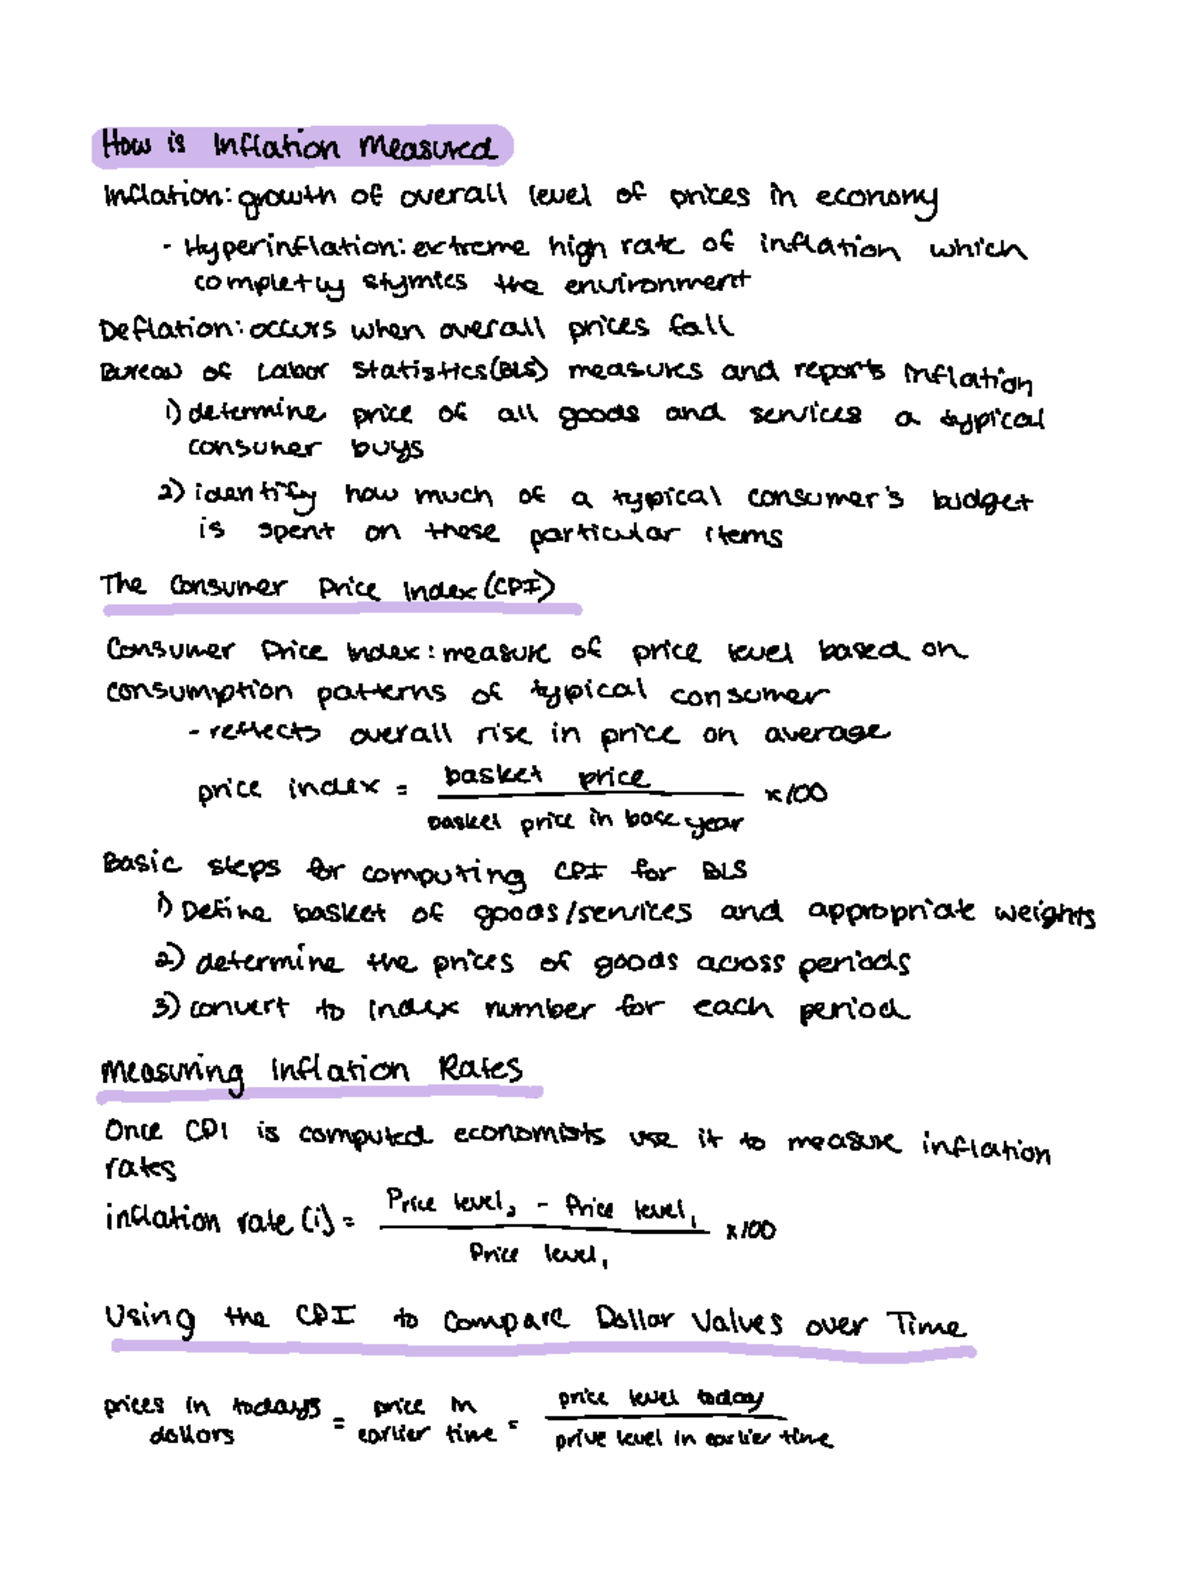 How is Inflation Measured
Inflation: growth of overall level of prices in economy
- Hyperinflation: extreme high rate of inflation which
completly stymies the environment
Deflation: occurs when overall prices fall
Bureau of Labor Statistics (BLS) measures and reports inflation
1) determine price of all goods and services a typical
consumer buys
2) identify how much of a typical consumer's budget
is spent on these particular items
The Consumer Price Index (CPI)
Consumer Price Index: measure of price level based on
consumption patterns of typical consumer
- reflects overall rise in price on average
price index = basket price / basket price in base year x100
Basic steps for computing CPI for BLS
1) Define basket of goods/services and appropriate weights
2) determine the prices of goods across periods
3) convert to index number for each period
Measuring Inflation Rates
Once CPI is computed economists use it to measure inflation
rates
inflation rate (i) = Price level₂ - Price level₁ / Price level₁ x100
Using the CPI to Compare Dollar Values over Time
prices in todays dollars = price in earlier time = price level today / prive level in earlier time